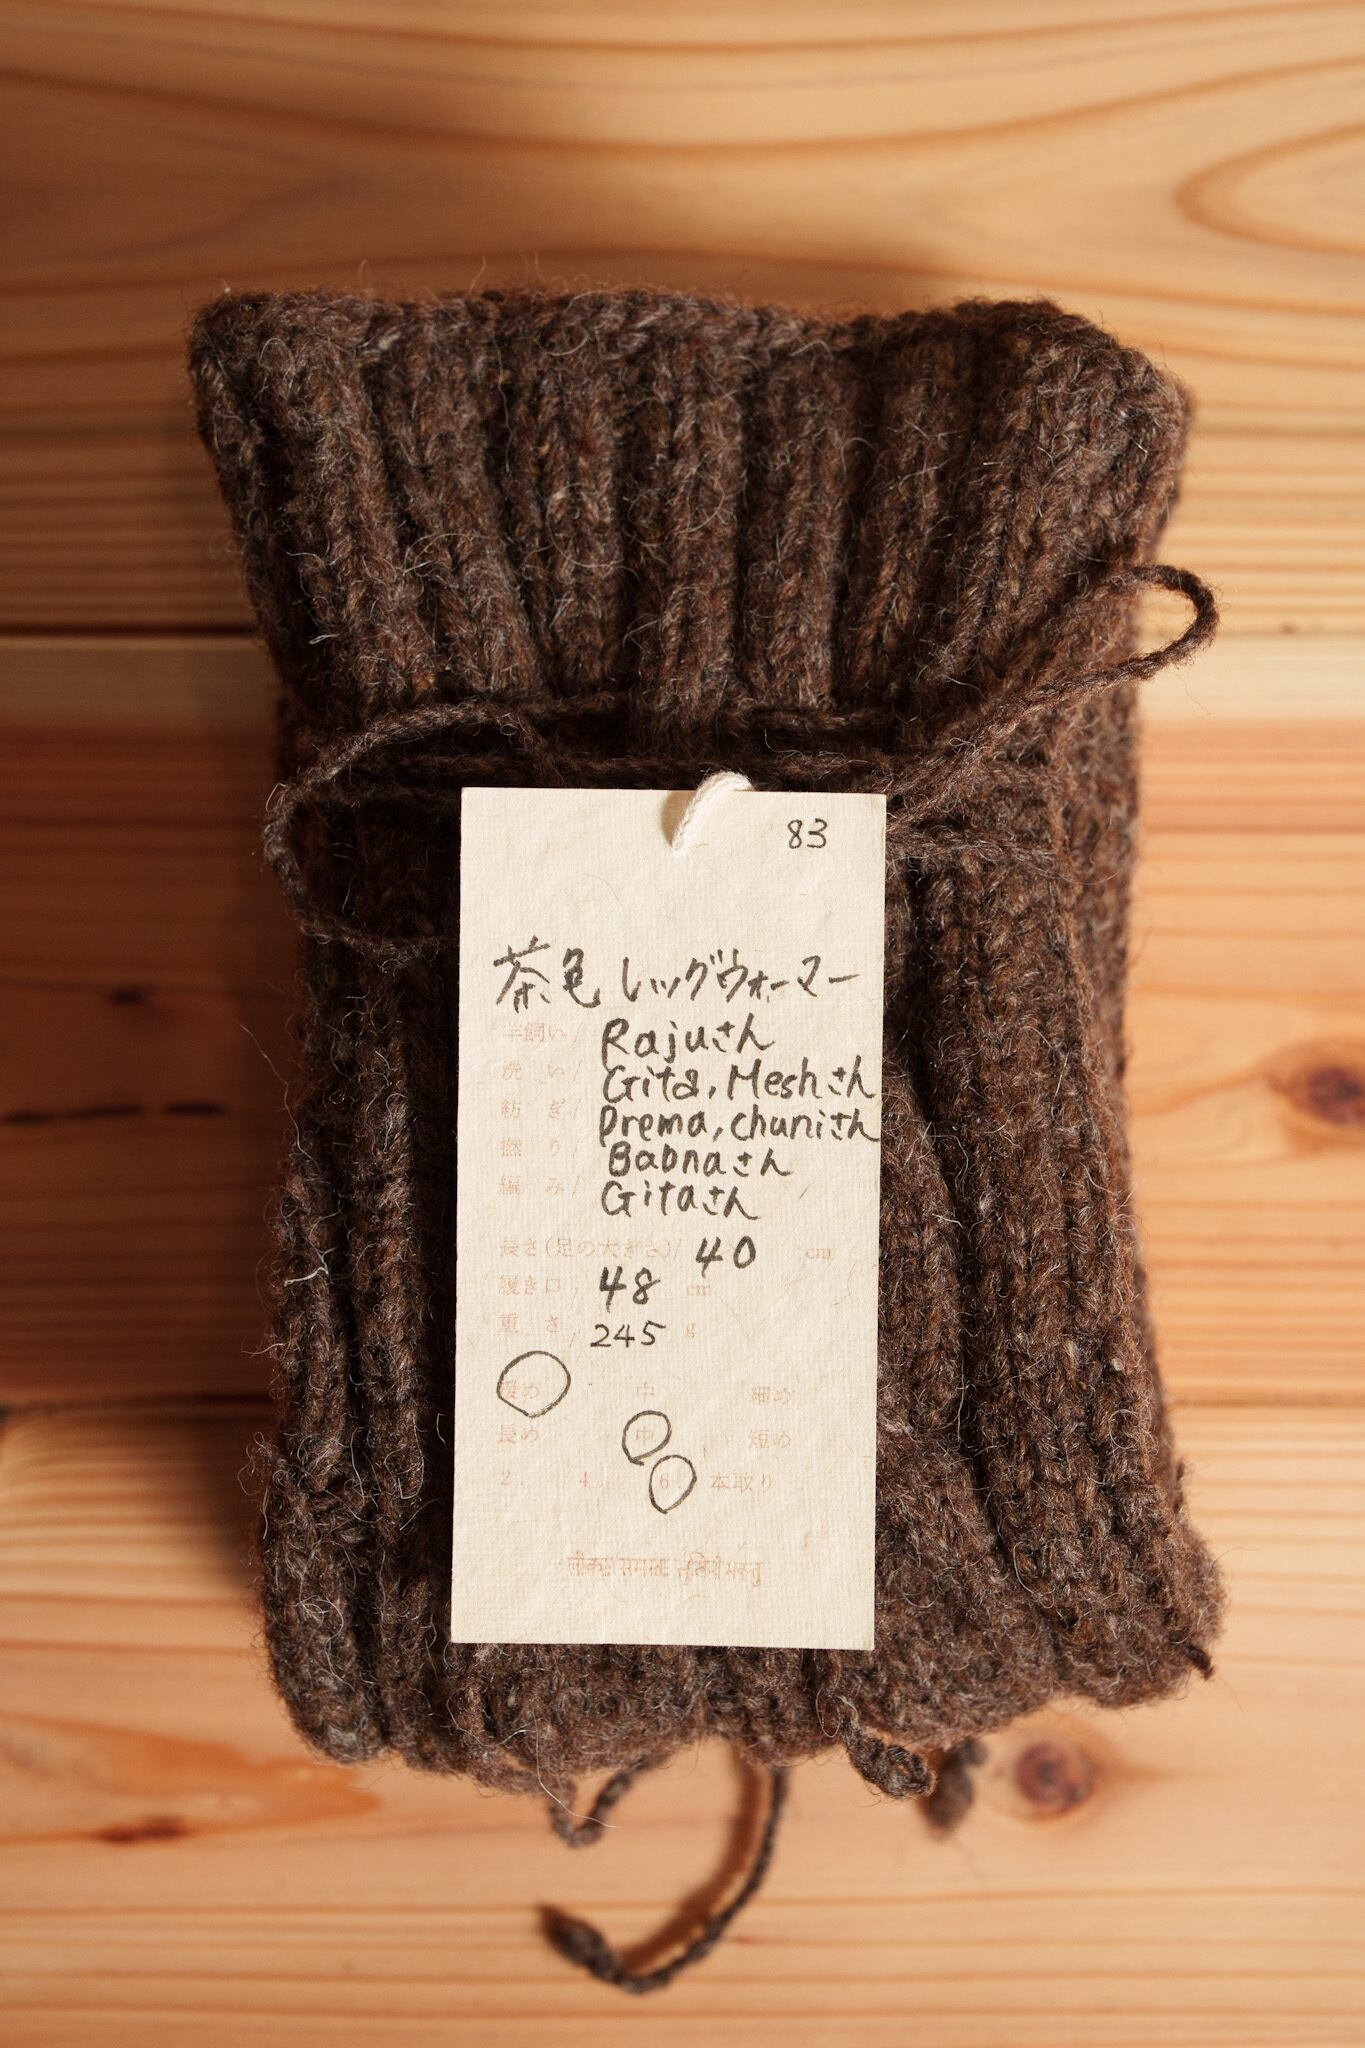 83
茶色 レッグウォーマー
羊飼い/ Rajuさん
洗い/ Gita, Meshさん
紡ぎ/ Prema, chuniさん
撚り/ Babnaさん
編み/ Gitaさん
長さ(足の大きさ)/ 40 cm
履き口/ 48 cm
重さ/ 245 g
暖め 中 細め
長め 中 短め
2. 4. 6. 本取り